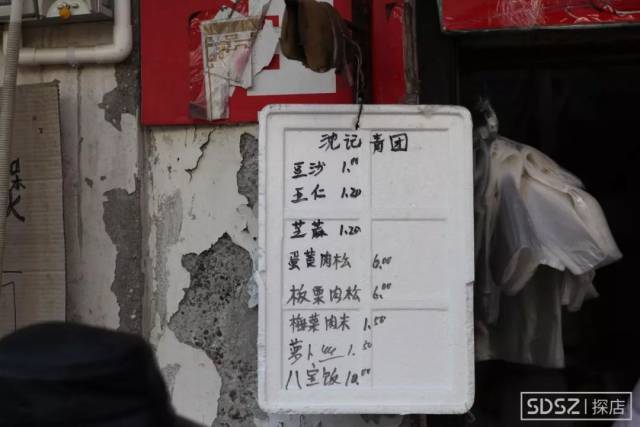 沈记青团
豆沙 1.00
五仁 1.20
芝蔴 1.20
蛋黄肉松 6.00
板栗肉松 6.00
梅菜肉末 1.50
萝卜丝 1.50
八宝饭 10.00
SDSZ|探店